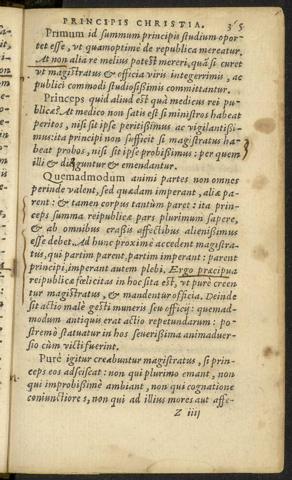 PRINCIPIS CHRISTIA. 365
Primum id summum principis studium opor-
tet esse, vt quamoptime de republica mereatur.
At non alia re melius potest mereri, quàm si curet
vt magistratus & officia viris integerrimis, ac
publici commodi studiosissimis committantur.
Princeps quid aliud est quàm medicus rei pu-
blicæ? At medico non satis est si ministros habeat
peritos, nisi sit ipse peritissimus ac vigilantissi-
mus: ita principi non sufficit si magistratus ha-
beat probos, nisi sit ipse probissimus: per quem
illi & diliguntur & emendantur.
Quemadmodum animi partes non omnes
perinde valent, sed quædam imperant, aliæ pa-
rent: & tamen corpus tantùm paret: ita prin-
ceps summa reipublicæ pars plurimum sapere,
& ab omnibus crassis affectibus alienissimus
esse debet. Ad hunc proximè accedent magistra-
tus, qui partim parent, partim imperant: parent
principi, imperant autem plebi. Ergo præcipua
reipublicæ fœlicitas in hoc sita est, vt purè creen
tur magistratus, & mandentur officia. Deinde
sit actio malè gesti muneris seu officij: quemad-
modum antiquis erat actio repetundarum: po-
stremò statuatur in hos seuerissima animaduer-
sio cùm victi fuerint.
Purè igitur creabuntur magistratus, si prin-
ceps eos adsciscat: non qui plurimo emant, non
qui improbissimè ambiant, non qui cognatione
coniunctiores, non qui ad illius mores aut affe-
Z iiij